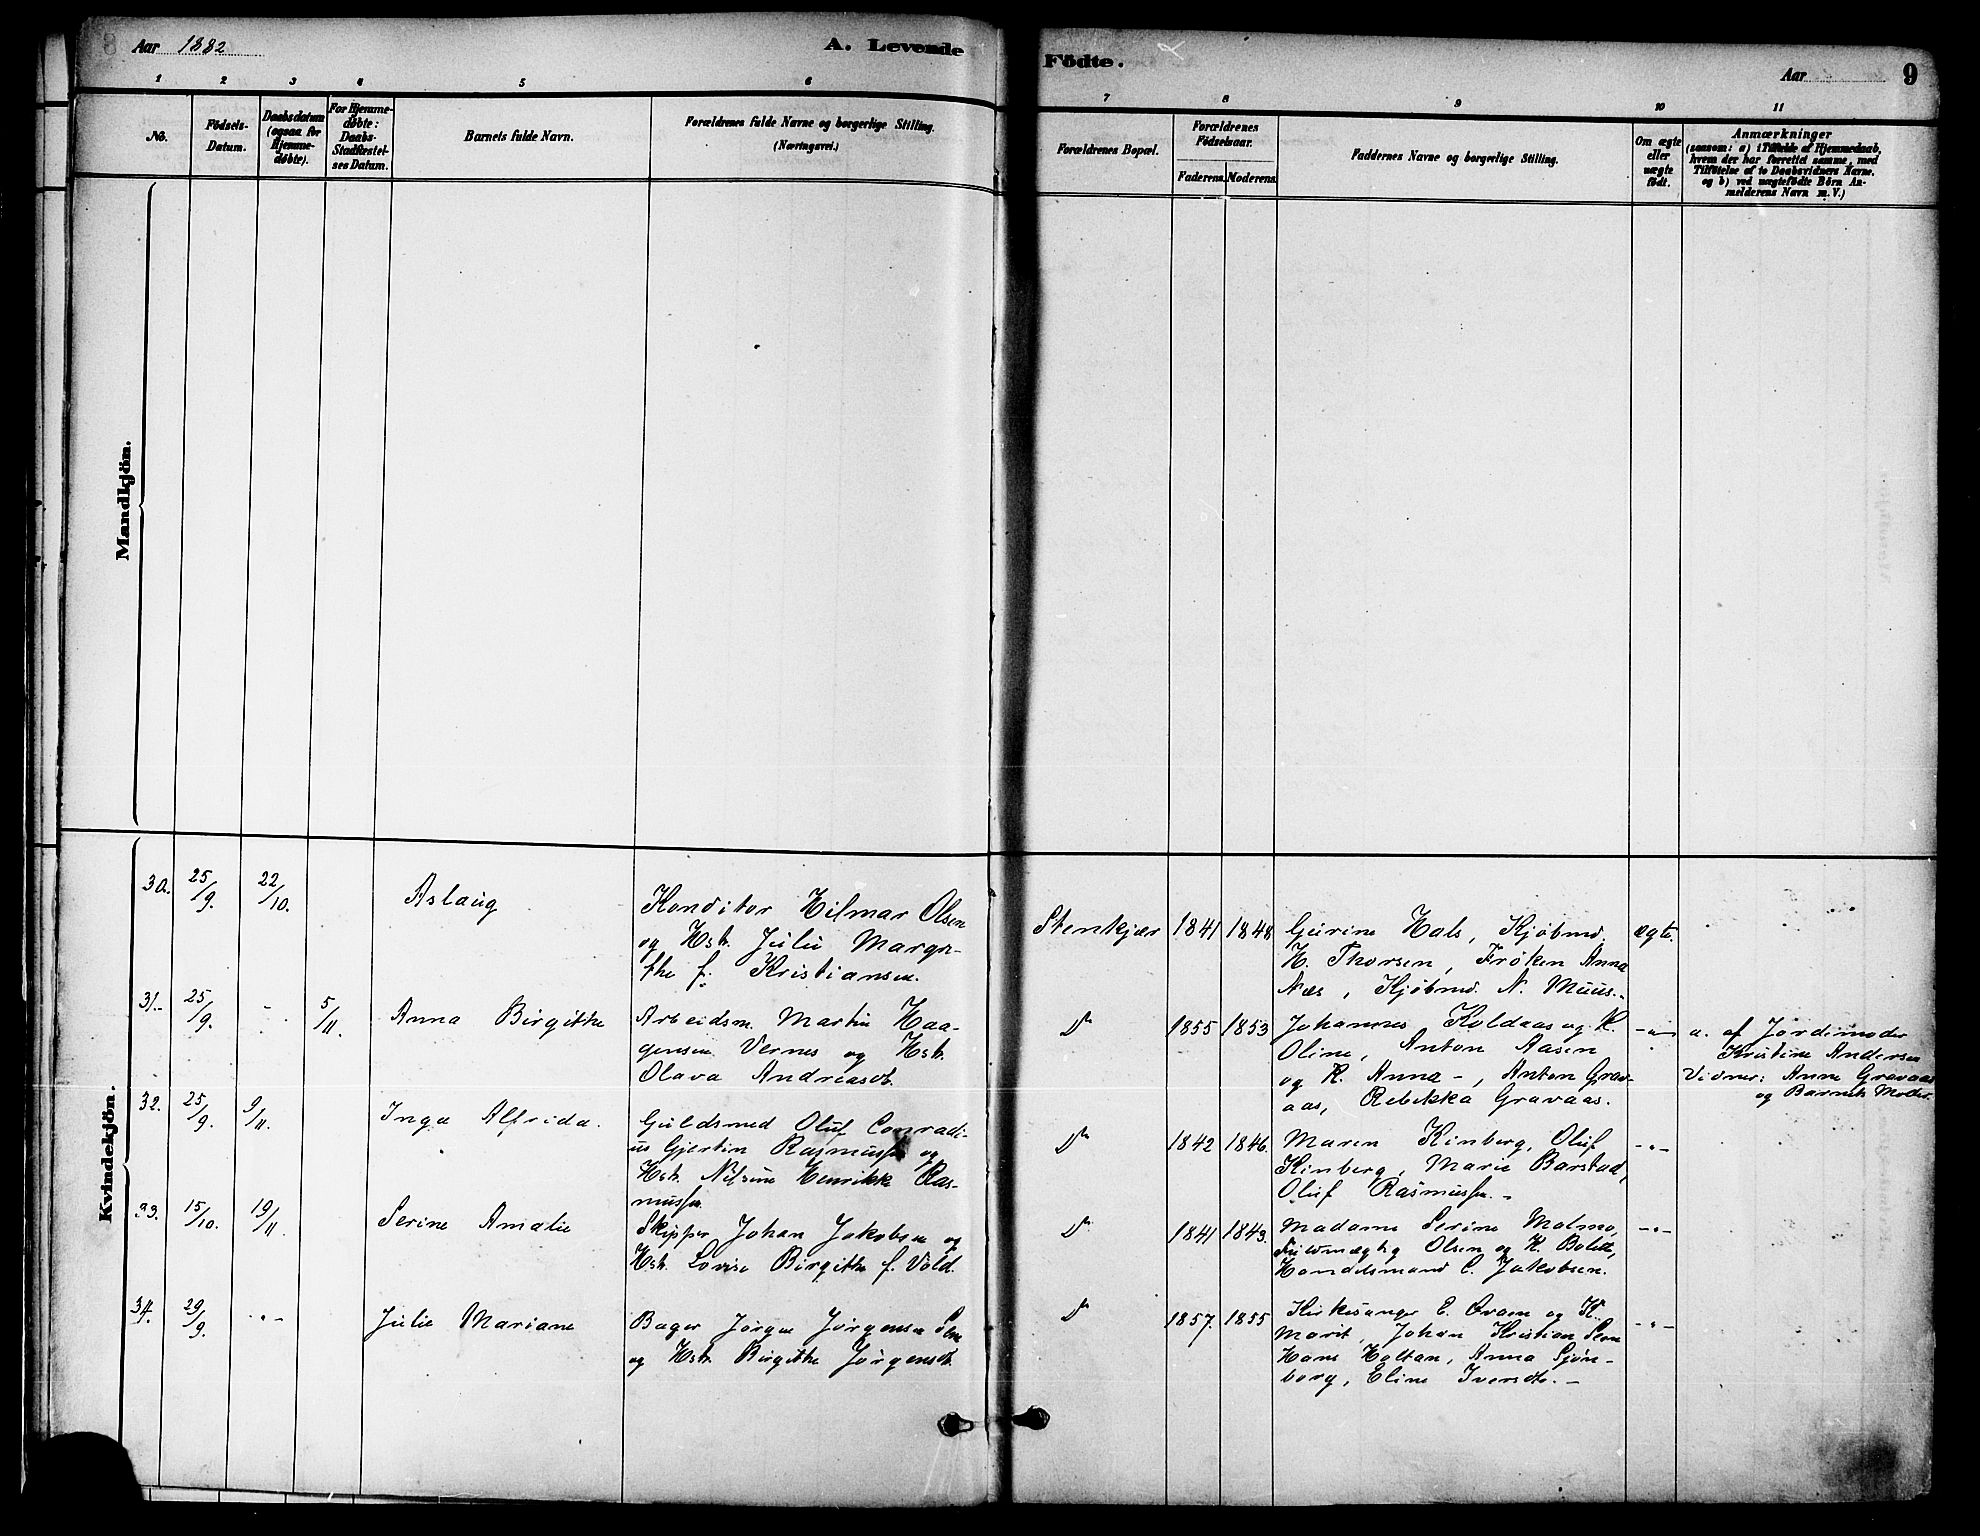 8 Aar 1882 A. Levende Födte. Aar 9
1 2 3 4 5 6 7 8 9 10 11
No.
Födsels-
Datum.
Daabsdatum
(ogsaa for
Hjemme-
døbte).
For Hjemme-
døbte:
Daabs-
Stadfæstel-
ses Datum.
Barnets fulde Navn.
Forældrenes fulde Navne og borgerlige Stilling.
(Næringsvei.)
Forældrenes Bopæl.
Forældrenes
Födselsaar.
Faderens. Moderens.
Faddernes Navne og borgerlige Stilling.
Om ægte
eller
uægte
födt.
Anmærkninger
(saasom: a) i Tilfælde af Hjemmedaab,
hvem der har forrettet samme, med
Tilföielse af to Daabsvidners Navne,
og b) ved uægtefödte Börn An-
melderens Navn m. V.)
Mandkjön.
Kvindekjön.
30. 25/9. 22/10. Aslaug
Konditor Hilmar Olsen
og Hstr. Julie Margre-
the f. Kristiansen.
Stenkjær 1841 1848
Gurine Hals, Kjøbmd.
H. Thorsen, Frøken Anna
Næs, Kjøbmd. N. Muus.
ægte.
31. 25/9. - 5/11. Anna Birgitte
Arbeidsm. Martin Haa-
gensen Vernes og Hstr.
Olava Andreasdt.
Do 1855 1853
Johannes Koldaas og K.
Oline, Anton Aasen
og K. Anna -, Anton Grav-
aas, Rebekka Gravaas.
-"-
a. af Jordemoder
Kristine Andersen
Vidner: Anne Gravaas
og Barnets Moder.
32. 25/9. 9/11. Inga Alfrida.
Guldsmed Oluf Conradi-
us Gjertin Rasmussen og
Hstr. Nilsine Henrikke Ras-
mussen.
Do 1842 1846.
Maren Kinberg, Oluf
Kinberg, Marie Barstad,
Oluf Rasmussen. -
-"-
33. 15/10. 19/11. Serine Amalie
Skipper Johan Jakobsen og
Hstr. Lovise Birgitte f. Vold.
Do 1841 1843.
Madame Serine Malmo,
Fuldmægtig Olsen og K. Bolette,
Handelsmand C. Jakobsen.
-"-
34. 29/9. -"- Julie Mariane
Bager Jørgen Jørgensen Sem
og Hstr. Birgitte Jørgensdt.
Do 1857. 1855
Kirkesanger E. Qvam og K.
Marit, Johan Kristian Sem
Hans Holtan, Anna Sjøn-
borg, Eline Iversdt. -
-"-